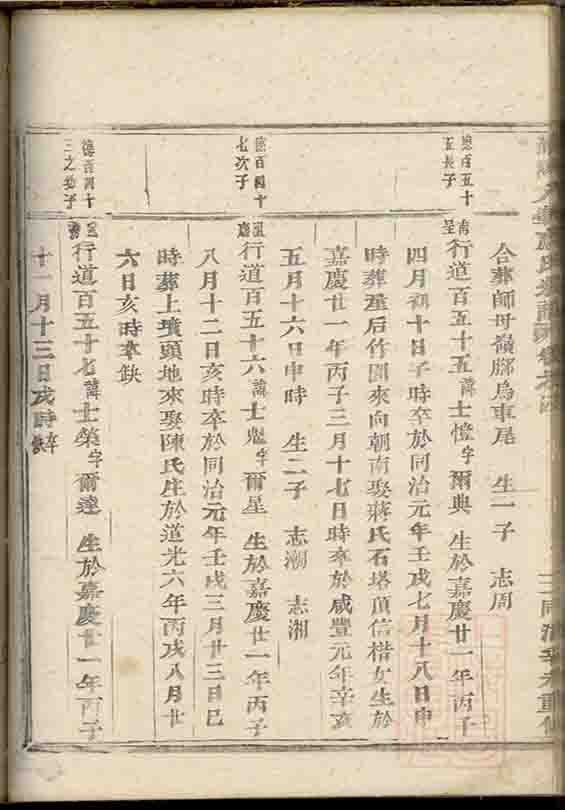 同治辛未重修
合葬師母嶺腳烏車尾 生一子 志周
德百五十
五長子
行道百五十五諱士憶字爾典 生於嘉慶廿一年丙子
四月初十日子時卒於同治元年壬戌七月十八日申
時葬屋后竹園來向朝南娶蔣氏石塔頂信楷女生於
嘉慶廿一年丙子三月十七日時卒於咸豐元年辛亥
五月十六日申時 生二子 志潮 志湘
德百四十
七次子
行道百五十六諱士魁字爾星 生於嘉慶廿一年丙子
八月十二日亥時卒於同治元年壬戌三月廿三日巳
時葬上墳頭地來娶陳氏生於道光六年丙戌八月廿
六日亥時卒缺
德百四十
三之幼子
行道百五十七諱士榮字爾達 生於嘉慶廿一年丙子
十一月十三日戌時卒缺